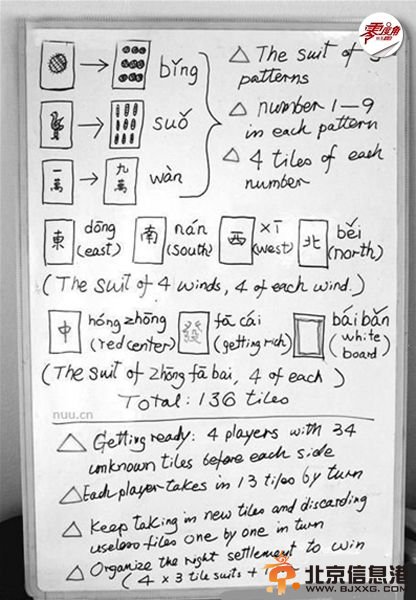 零度角
→ bǐng
→ suǒ
一萬 → 九萬 wàn
△ The suit of 3 patterns
△ number 1—9
in each pattern
△ 4 tiles of each
number
東 dōng (east) 南 nán (south) 西 xī (west) 北 běi (north)
(The suit of 4 winds, 4 of each wind.)
中 hóng zhōng (red center) 發 fā cái (getting rich) bái bǎn (white board)
(The suit of zhōng fā bái, 4 of each)
nuu.cn
Total: 136 tiles
△ Getting ready: 4 players with 34
unknown tiles before each side
△ Each player takes in 13 tiles by turn
△ Keep taking in new tiles and discarding
useless tiles one by one in turn
△ Organize the right settlement to win
(4 x 3 tile suits +
北京信息港
WWW.BJXXG.COM